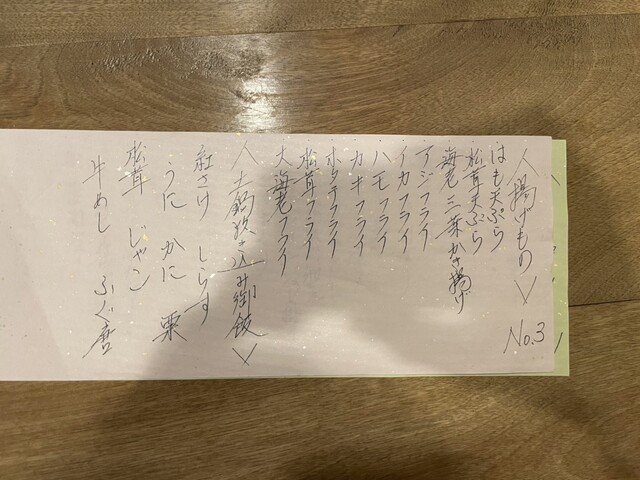 No.3
〈揚げもの〉
はも天ぷら
松茸天ぷら
海老三葉かき揚げ
アジフライ
イカフライ
ハモフライ
カキフライ
ホタテフライ
松茸フライ
大海老フライ
〈土鍋炊き込み御飯〉
紅さけ しらす
うに かに 栗
松茸 じゃこ
牛めし ふぐ唐